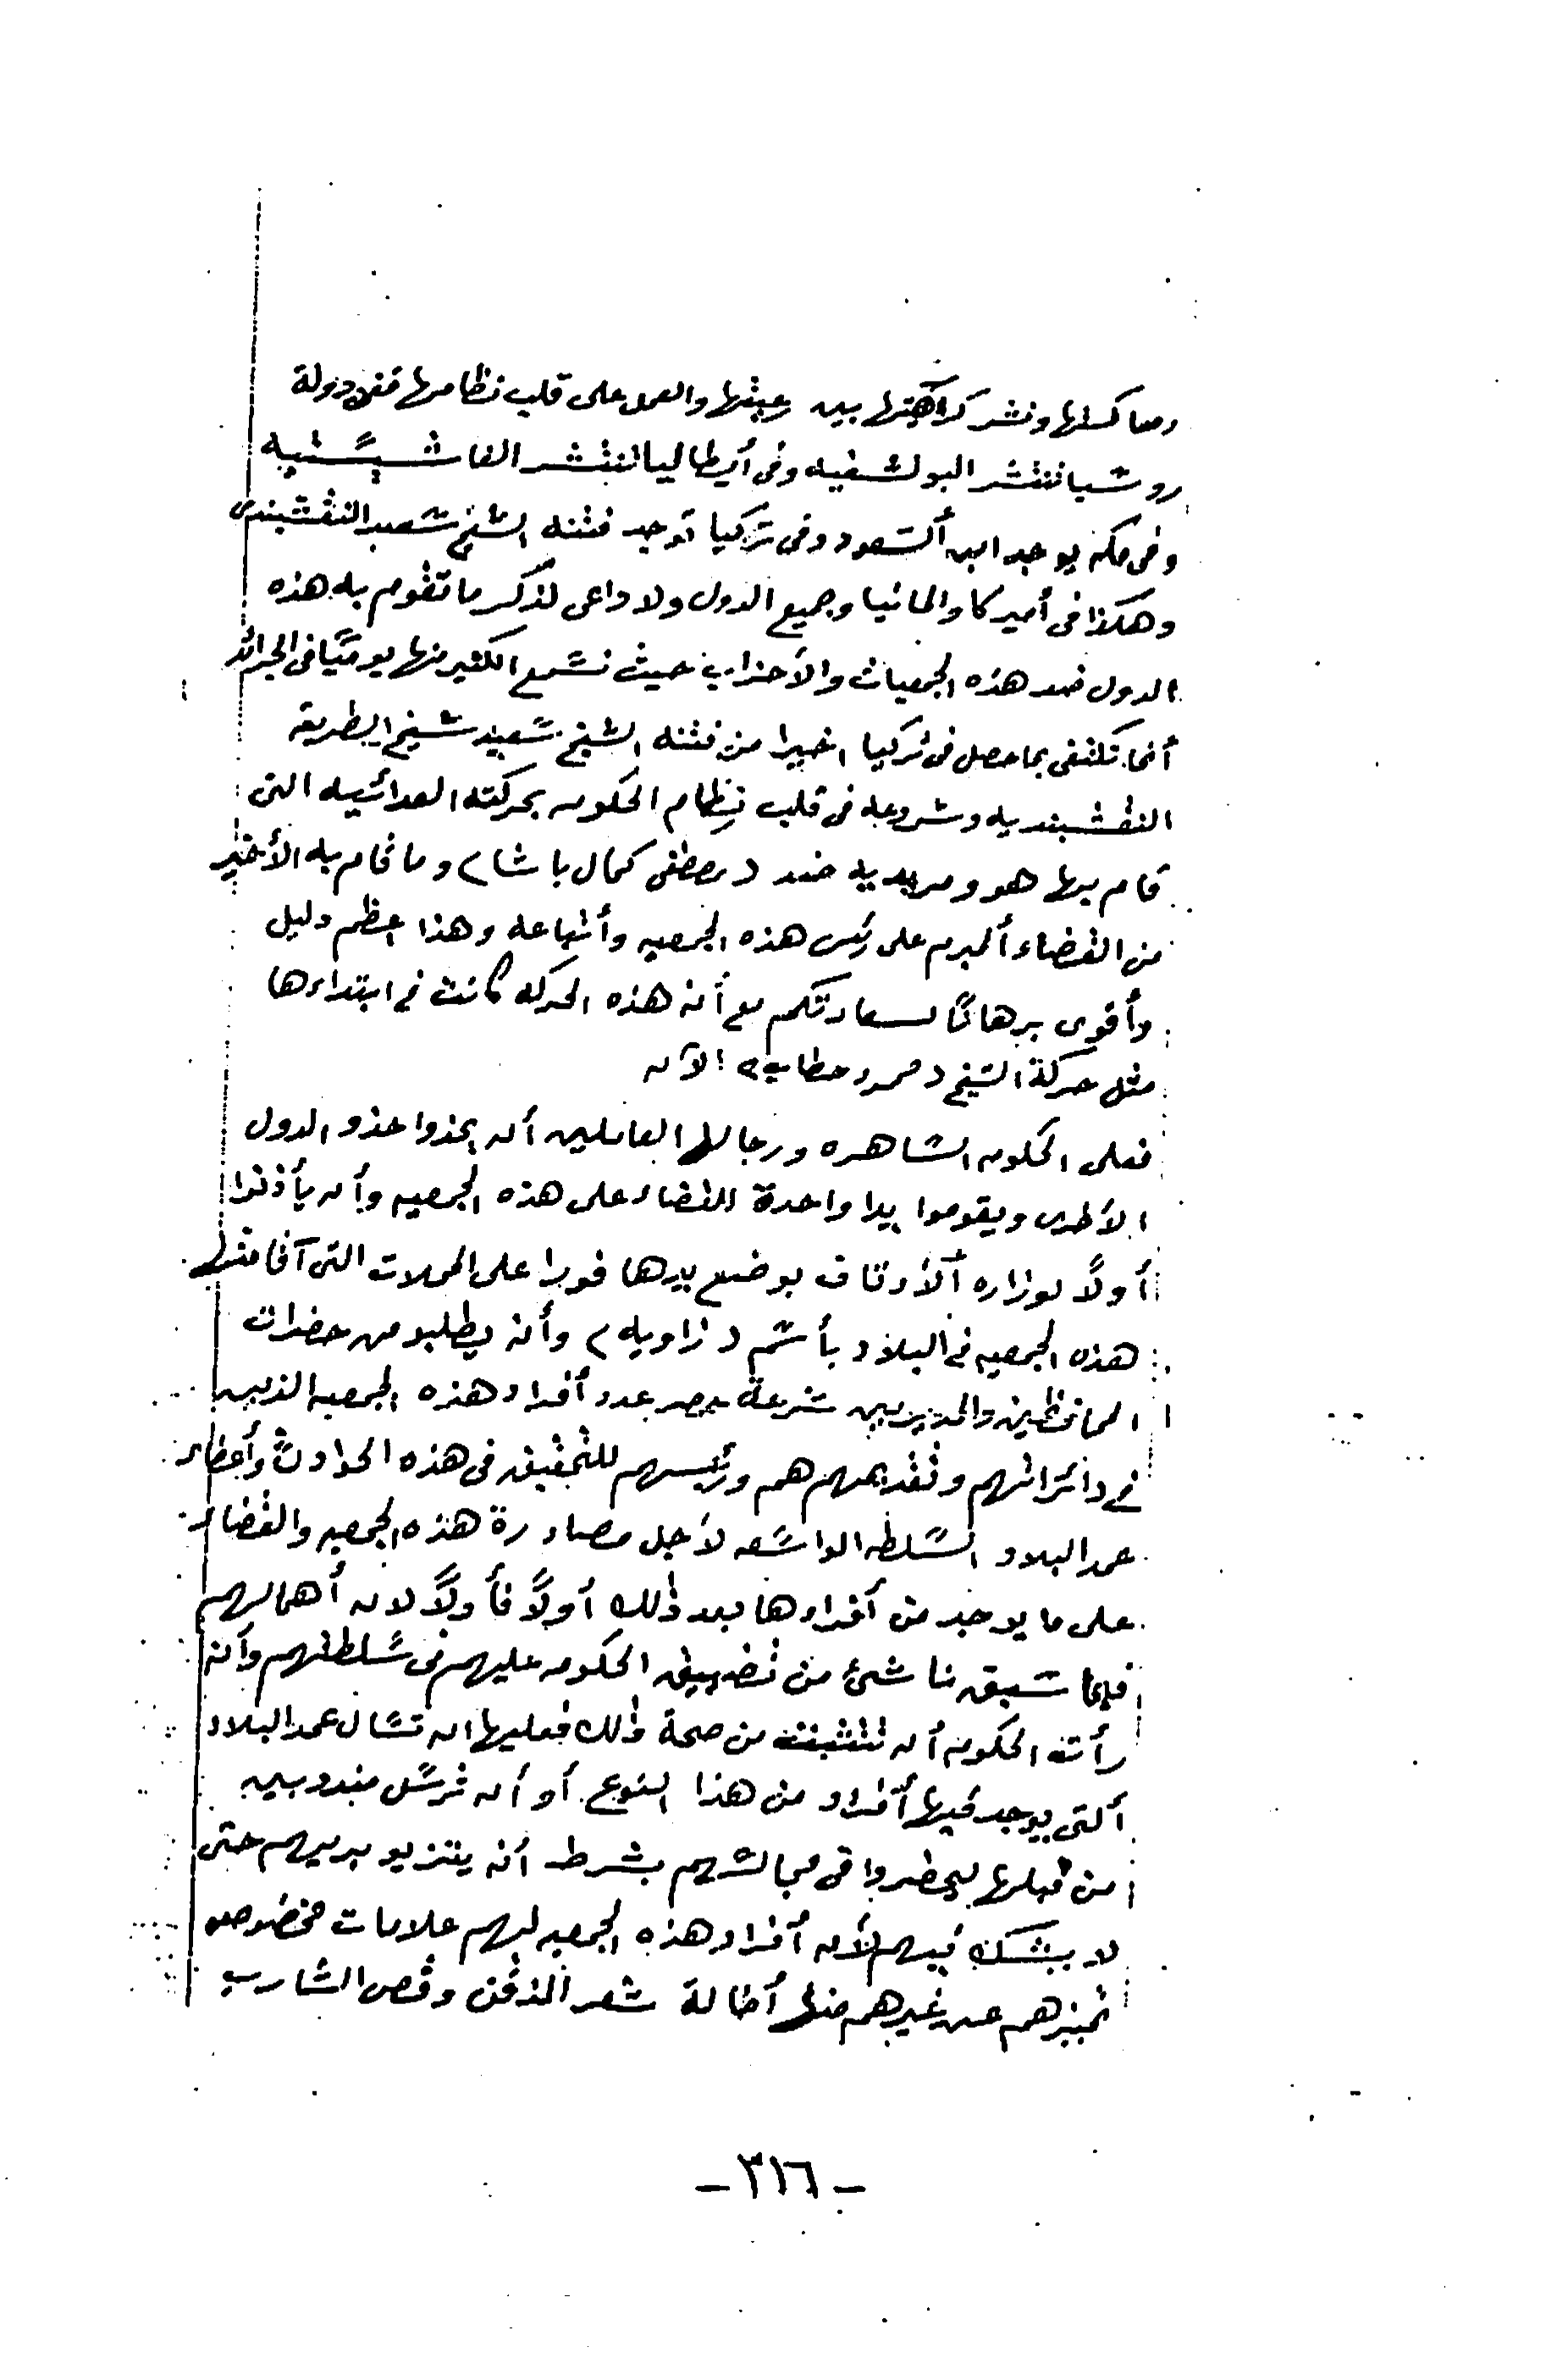 ومعاكستها ونشر كراهيتها بين رعيتها والعمل على قلب نظامها ففى دولة
روسيا تنتشر البولشفيه وفى أيطاليا تنتشر الفاشيستيه
وفى مكه يوجد ابن السعود وفى تركيا توجد فتنه الشيخ سعيد النقشبندى
وهكذا فى أميركا والمانيا وجميع الدول ولا داعى لذكر ما تقوم به هذه
الدول ضد هذه الجمعيات والأحزاب حيث نسمع الكثير منها يوميًا فى الجرائد
أنما نكتفى بما حصل فى تركيا اخيرا من فتنه الشيخ سعيد شيخ الطريقه
النقشبنديه وشروعه فى قلب نظام الحكومه بحركته العدائيه التى
قام بها هو ومريديه ضد (مصطفى كمال باشا) وما قام به الأخير
من القضاء المبرم على رئيس هذه الجمعيه وأتباعه وهذا اعظم دليل
وأقوى برهانًا لسعادتكم مع أن هذه الحركه كانت فى ابتداءها
مثل حركة الشيخ (محمود خطاب) الآن
فعلى الحكومه الساهره ورجالها العاملين أن يحذوا حذو الدول
الأخرى ويقوموا يدا واحدة للقضاء على هذه الجمعيه وأن يأذنوا
أولًا لوزاره الأوقاف بوضع يدها فورا على المحلات التى آقامتها
هذه الجمعيه فى البلاد بأسم (زاويه) وأن يطلبو من حضرات
المحافظين والمديرين سرعة حصر عدد أفراد هذه الجمعيه الذين
فى دائراتهم وتقديمهم هم ورئيسهم للتحقيق فى هذه الحوادث وأعطاء
عمد البلاد السلطه الواسعه لأجل مصادرة هذه الجمعيه والقضاء
على ما يوجد من أفرادها بعد ذلك أولًا فأولًا لان أهمالهم
فيما سبق ناشئ من تضييق الحكومه عليهم فى سلطتهم وأن
رأت الحكومه أن تتثبت من صحة ذلك فعليها ان تسال عمد البلاد
ألتى يوجد فيها أفراد من هذا النوع أو أن ترسل مندوبين
من قبلها ليحضروا فى مجالسهم بشرط أن يتزيو بزيهم حتى
لا يشك فيهم لأن أفراد هذه الجمعيه لهم علامات مخصوصه
تميزهم عن غيرهم منها أطالة شعر الذقن وقص الشارب
- ٣١٦ -